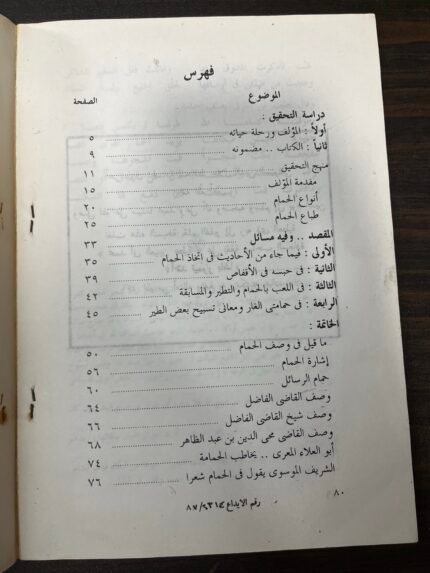 فهرس
الموضوع الصفحة
دراسة التحقيق :
أولاً : المؤلف ورحلة حياته ٥
ثانياً : الكتاب .. مضمونه ٩
منهج التحقيق ١١
مقدمة المؤلف ١٥
أنواع الحمام ٢٠
طباع الحمام ٢٥
المقصد .. وفيه مسائل ٣٣
الأولى : فيما جاء من الأحاديث فى اتخاذ الحمام ٣٥
الثانية : فى حبسه فى الأقفاص ٣٩
الثالثة : فى اللعب بالحمام والتطير والمسابقة ٤٢
الرابعة : فى حمامتى الغار ومعانى تسبيح بعض الطير ٤٥
الخاتمة :
ما قيل فى وصف الحمام ٥٠
إشارة الحمام ٥٦
حمام الرسائل ٦٠
وصف القاضى الفاضل ٦٤
وصف شيخ القاضى الفاضل ٦٦
وصف القاضى محى الدين بن عبد الظاهر ٦٨
أبو العلاء المعرى .. يخاطب الحمامة ٧٤
الشريف الموسوى يقول فى الحمام شعرا ٧٦
٨٠
رقم الايداع ٨٧/٤٣١٤